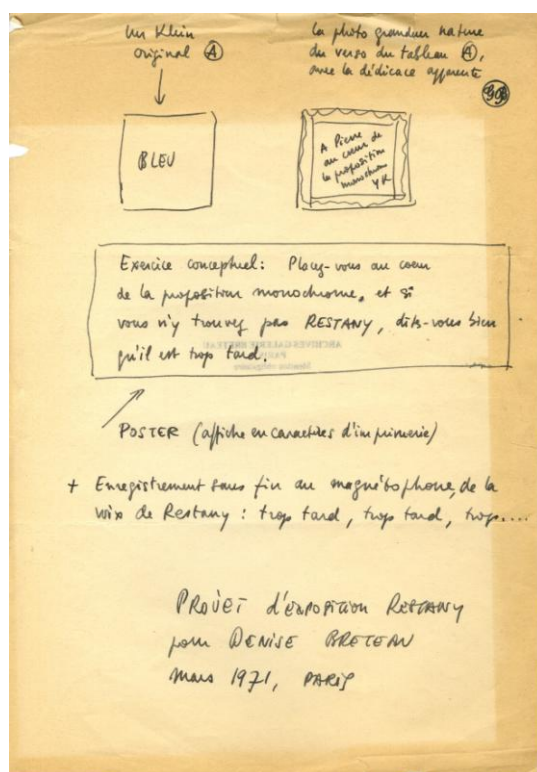 Un Klein
original Ⓐ
La photo grandeur nature
du verso du tableau Ⓐ,
avec la dédicace apparente
BLEU
A Pierre de
au coeur de
la proposition
monochrome
YK
Exercice conceptuel: Placez-vous au coeur
de la proposition monochrome, et si
vous n'y trouvez pas RESTANY, dites-vous bien
qu'il est trop tard.
ARCHIVES GALERIE BRETEAU
PARIS
Mention obligatoire
POSTER (affiche en caractères d'imprimerie)
+ Enregistrement sans fin au magnétophone, de la
voix de Restany : trop tard, trop tard, trop....
PROJET d'EXPOSITION RESTANY
pour DENISE BRETEAU
Mars 1971, PARIS